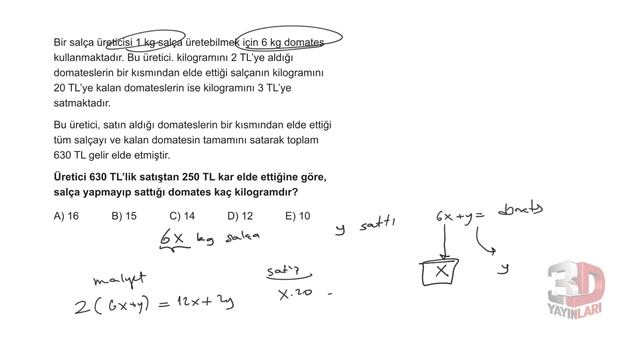 Bir salça üreticisi 1 kg salça üretebilmek için 6 kg domates
kullanmaktadır. Bu üretici. kilogramını 2 TL'ye aldığı
domateslerin bir kısmından elde ettiği salçanın kilogramını
20 TL'ye kalan domateslerin ise kilogramını 3 TL'ye
satmaktadır.
Bu üretici, satın aldığı domateslerin bir kısmından elde ettiği
tüm salçayı ve kalan domatesin tamamını satarak toplam
630 TL gelir elde etmiştir.
Üretici 630 TL'lik satıştan 250 TL kar elde ettiğine göre,
salça yapmayıp sattığı domates kaç kilogramdır?
A) 16 B) 15 C) 14 D) 12 E) 10
6x kg salça y sattı
6x+y=
x y
maliyet satış
2(6x+y) = 12x+2y x.20
3D
YAYINLARI